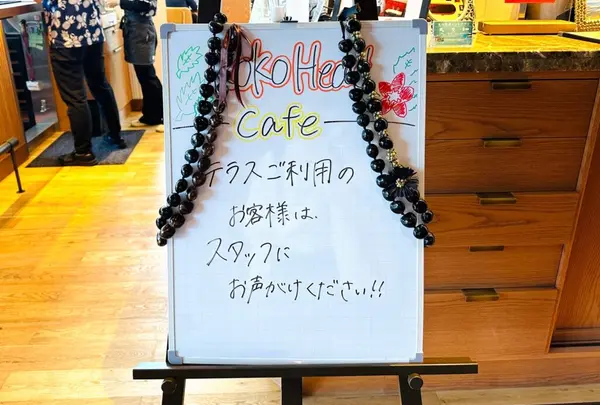 Koko Head
Cafe
テラスご利用の
お客様は、
スタッフに
お声がけください!!